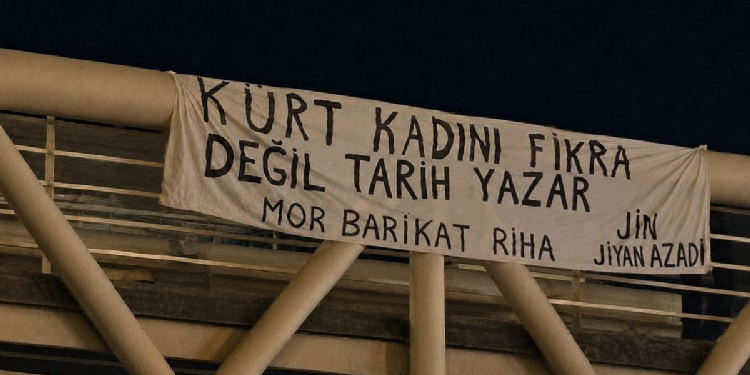 KÜRT KADINI FİKRA
DEĞİL TARİH YAZAR
MOR BARİKAT RİHA
JİN
JİYAN AZADİ